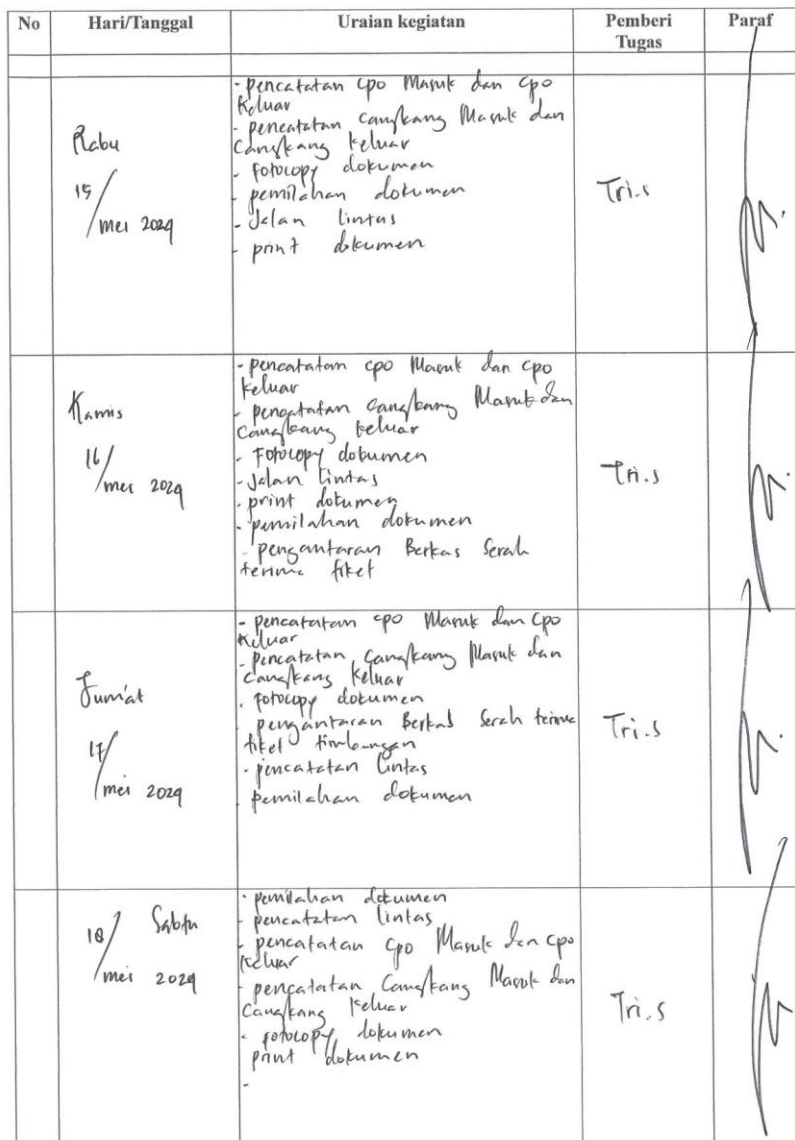 No Hari/Tanggal Uraian kegiatan Pemberi Tugas Paraf
Rabu
15/mei 2024
- pencatatan cpo Masuk dan cpo
Keluar
- pencatatan cangkang Masuk dan
Cangkang keluar
- fotocopy dokumen
- pemilahan dokumen
- Jalan lintas
- print dokumen
Tri.s
Kamis
16/mei 2024
- pencatatan cpo Masuk dan cpo
keluar
- pencatatan cangkang Masuk dan
Cangkang keluar
- Fotocopy dokumen
- Jalan lintas
- print dokumen
- pemilahan dokumen
- pengantaran Berkas Serah
terima tiket
Tri.s
Jum'at
17/mei 2024
- pencatatan cpo Masuk dan cpo
Keluar
- pencatatan Cangkang Masuk dan
Cangkang Keluar
- fotocopy dokumen
- pengantaran Berkas Serah terima
tiket timbangan
- pencatatan lintas
- pemilahan dokumen
Tri.s
18/ Sabtu
mei 2024
- pemilahan dokumen
- pencatatan lintas
- pencatatan cpo Masuk dan cpo
keluar
- pencatatan Cangkang Masuk dan
Cangkang keluar
- fotocopy dokumen
print dokumen
-
Tri.s